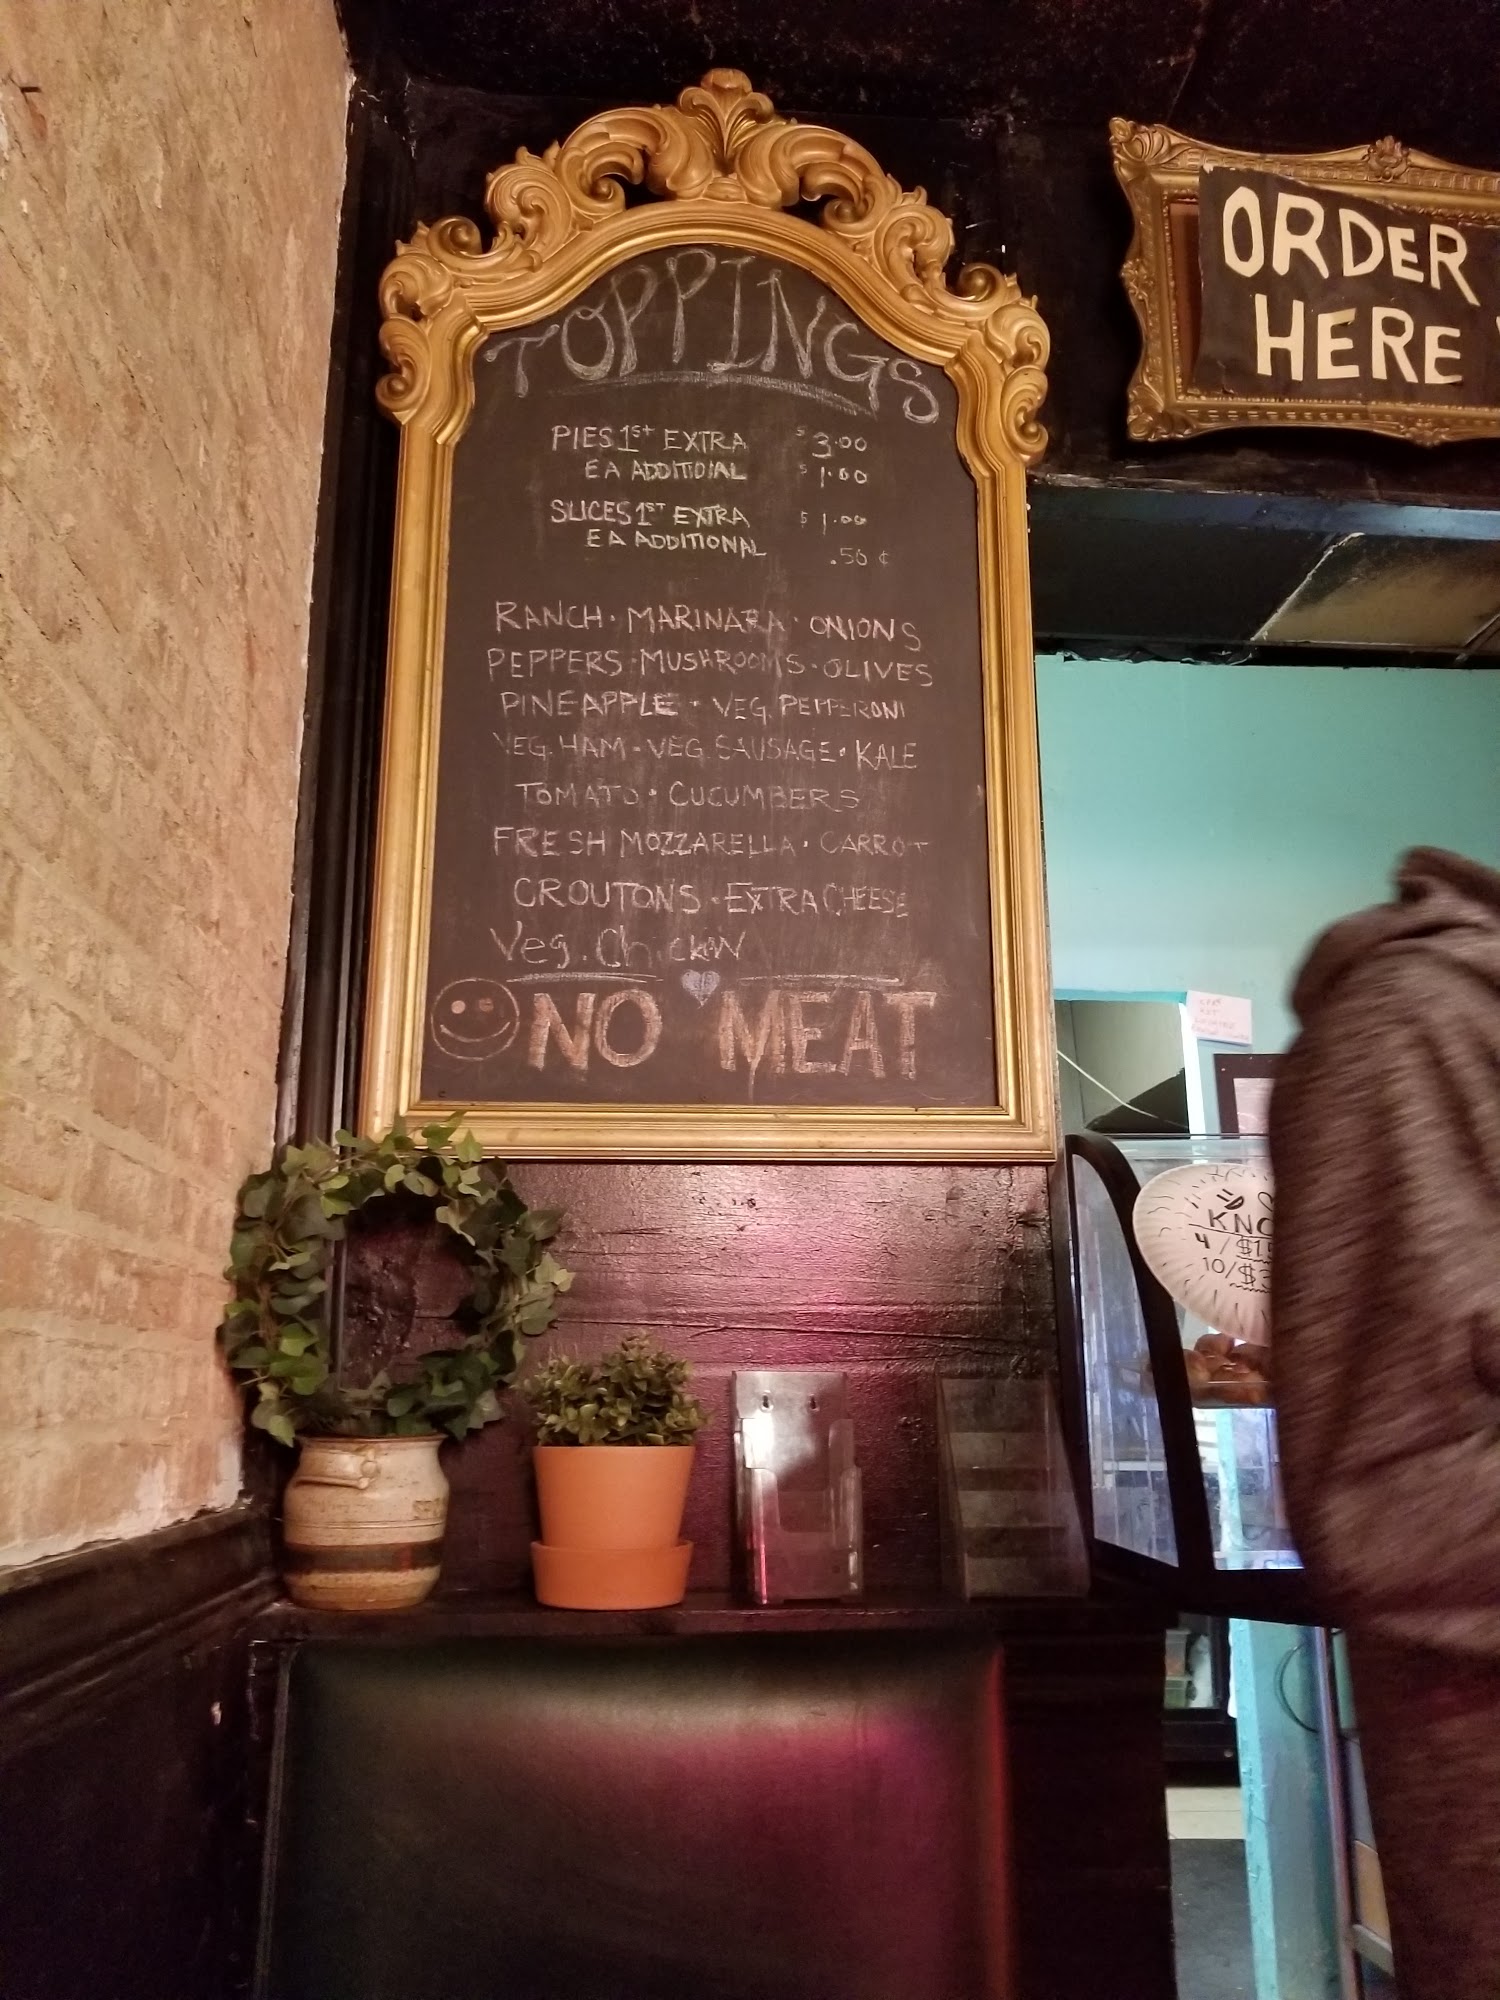 TOPPINGS
PIES 1st EXTRA $3.00
EA ADDITIOIAL $1.00
SLICES 1ST EXTRA $1.00
EA ADDITIONAL .50 ¢
RANCH · MARINARA · ONIONS
PEPPERS · MUSHROOMS · OLIVES
PINEAPPLE · VEG. PEPPERONI
VEG. HAM · VEG. SAUSAGE · KALE
TOMATO · CUCUMBERS
FRESH MOZZARELLA · CARROT
CROUTONS · EXTRA CHEESE
Veg. Chicken
NO MEAT
ORDER
HERE
KNO
4/$1
10/$